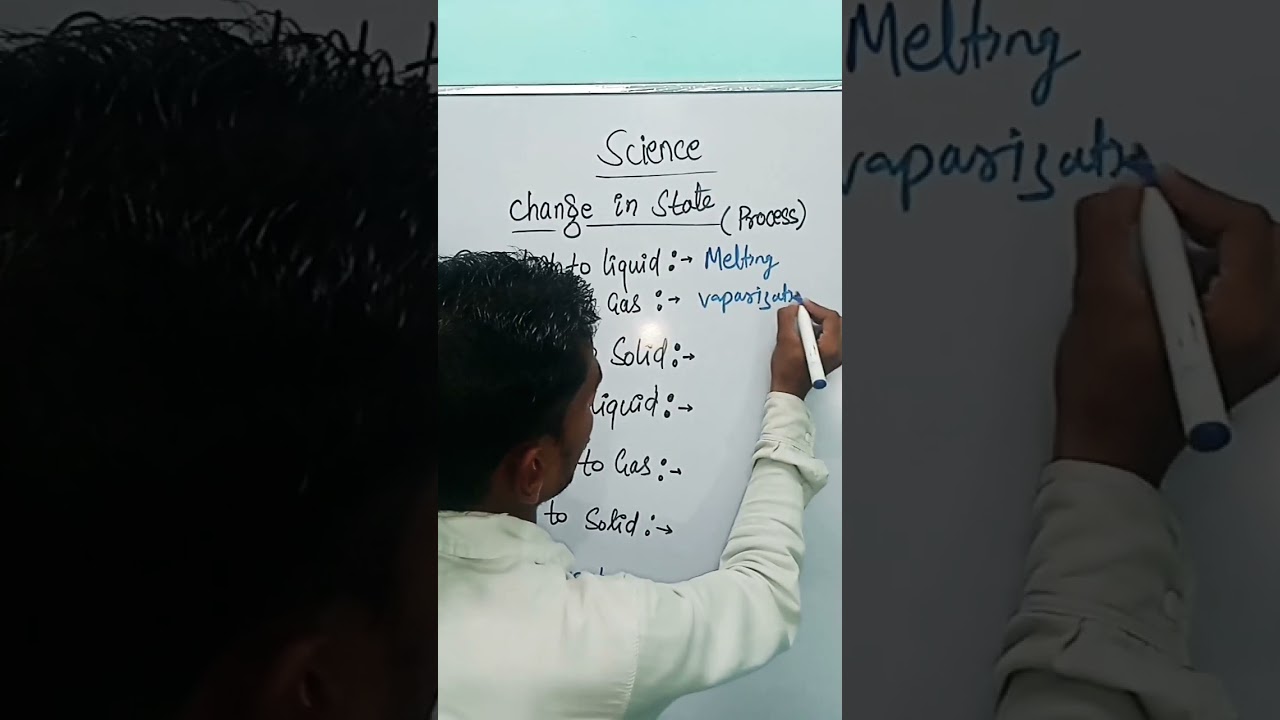 Science
change in State (Process)
to liquid :→ Melting
Gas :→ vaparizati
Solid :→
liquid :→
to Gas :→
to Solid :→